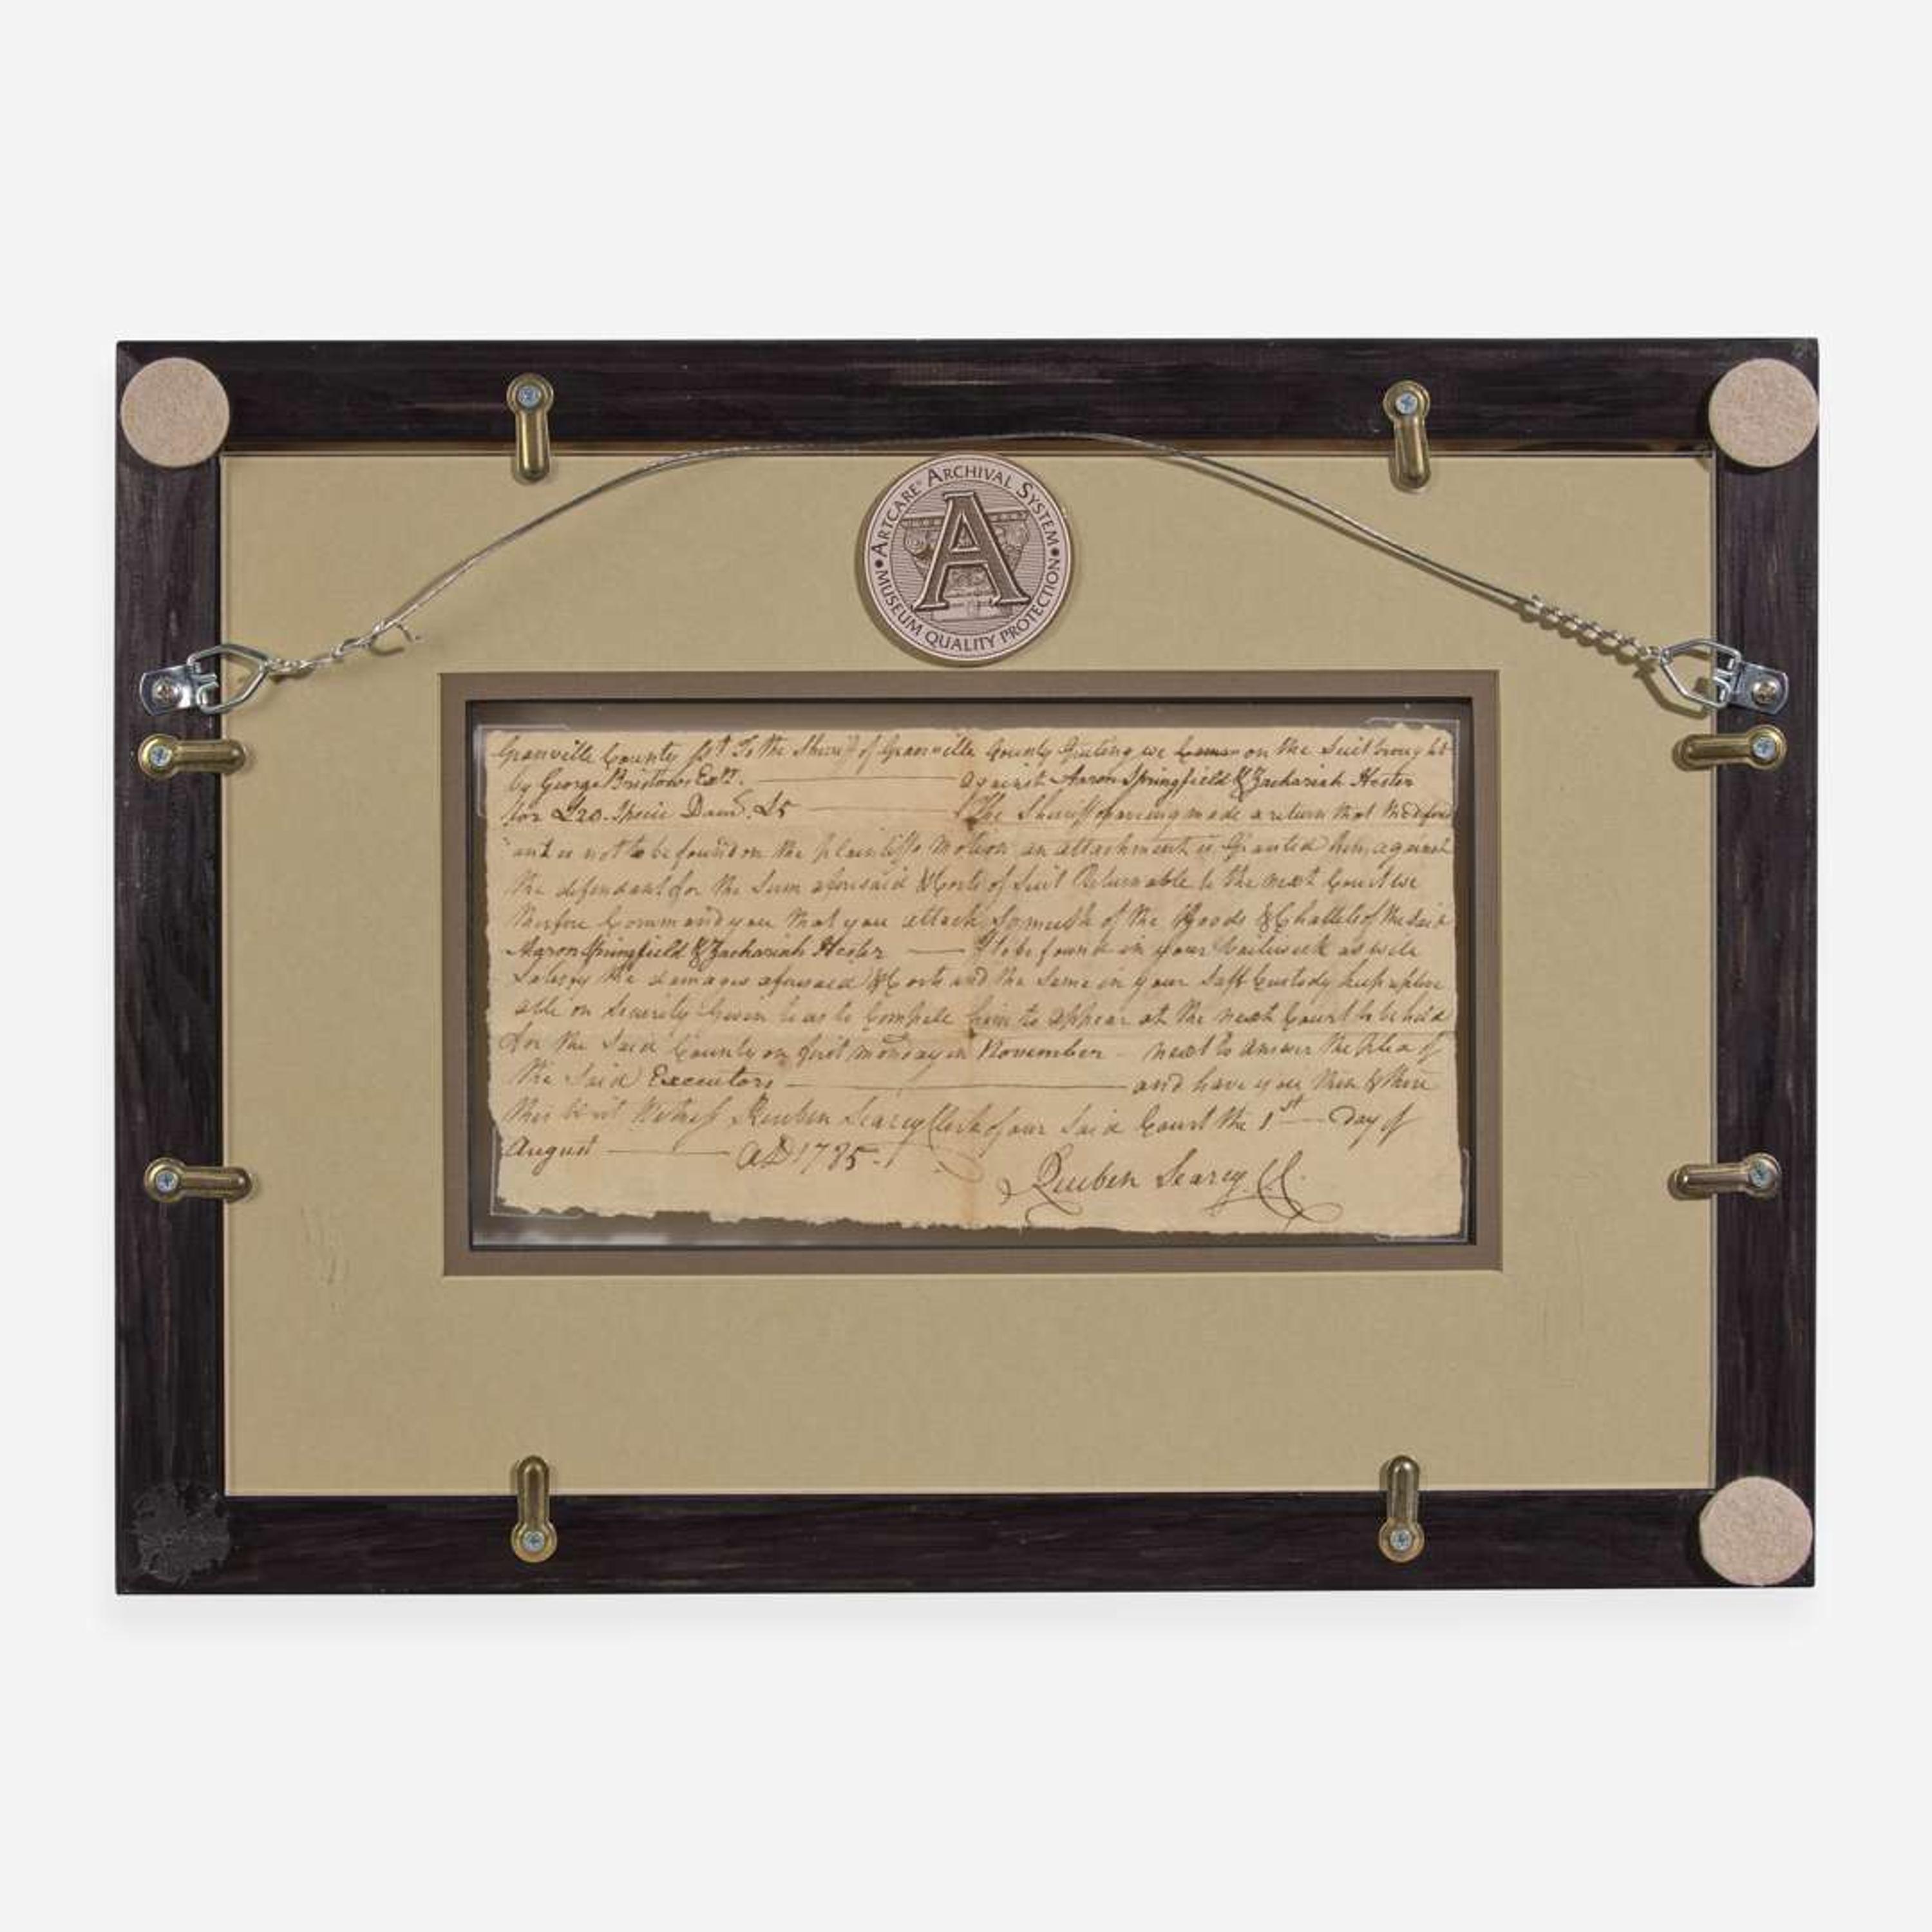 ARTCARE® ARCHIVAL SYSTEM
MUSEUM QUALITY PROTECTION
A
Granville County To the Sheriff of Granville County Greting we on the Suit brought
by George Bristows Exrs. against Aaron Springfield & Zachariah Hester
for £20. Specie Dam. £5 The Sheriff having made a return that the defend
ant is not to be found on the plaintiffs Motion an attachment is Granted him, against
the defendant for the Sum aforesaid & Costs of Suit Returnable to the next Court we
therfore Command you that you attach So much of the Goods & Chattels of the said
Aaron Springfield & Zachariah Hester if to be found in your Bailiwick as will
Satisfy the damages aforesaid & Costs and the Same in your Saff Custody keep replevi
able on Security Given so as to Compell him to appear at the next Court to be held
for the Said County on first monday in November next to answer the plea of
the Said Executors and have you then & there
this Writ Witness Reuben Searcy Clerk of our Said Court the 1st day of
August AD 1785.
Reuben Searcy CC.